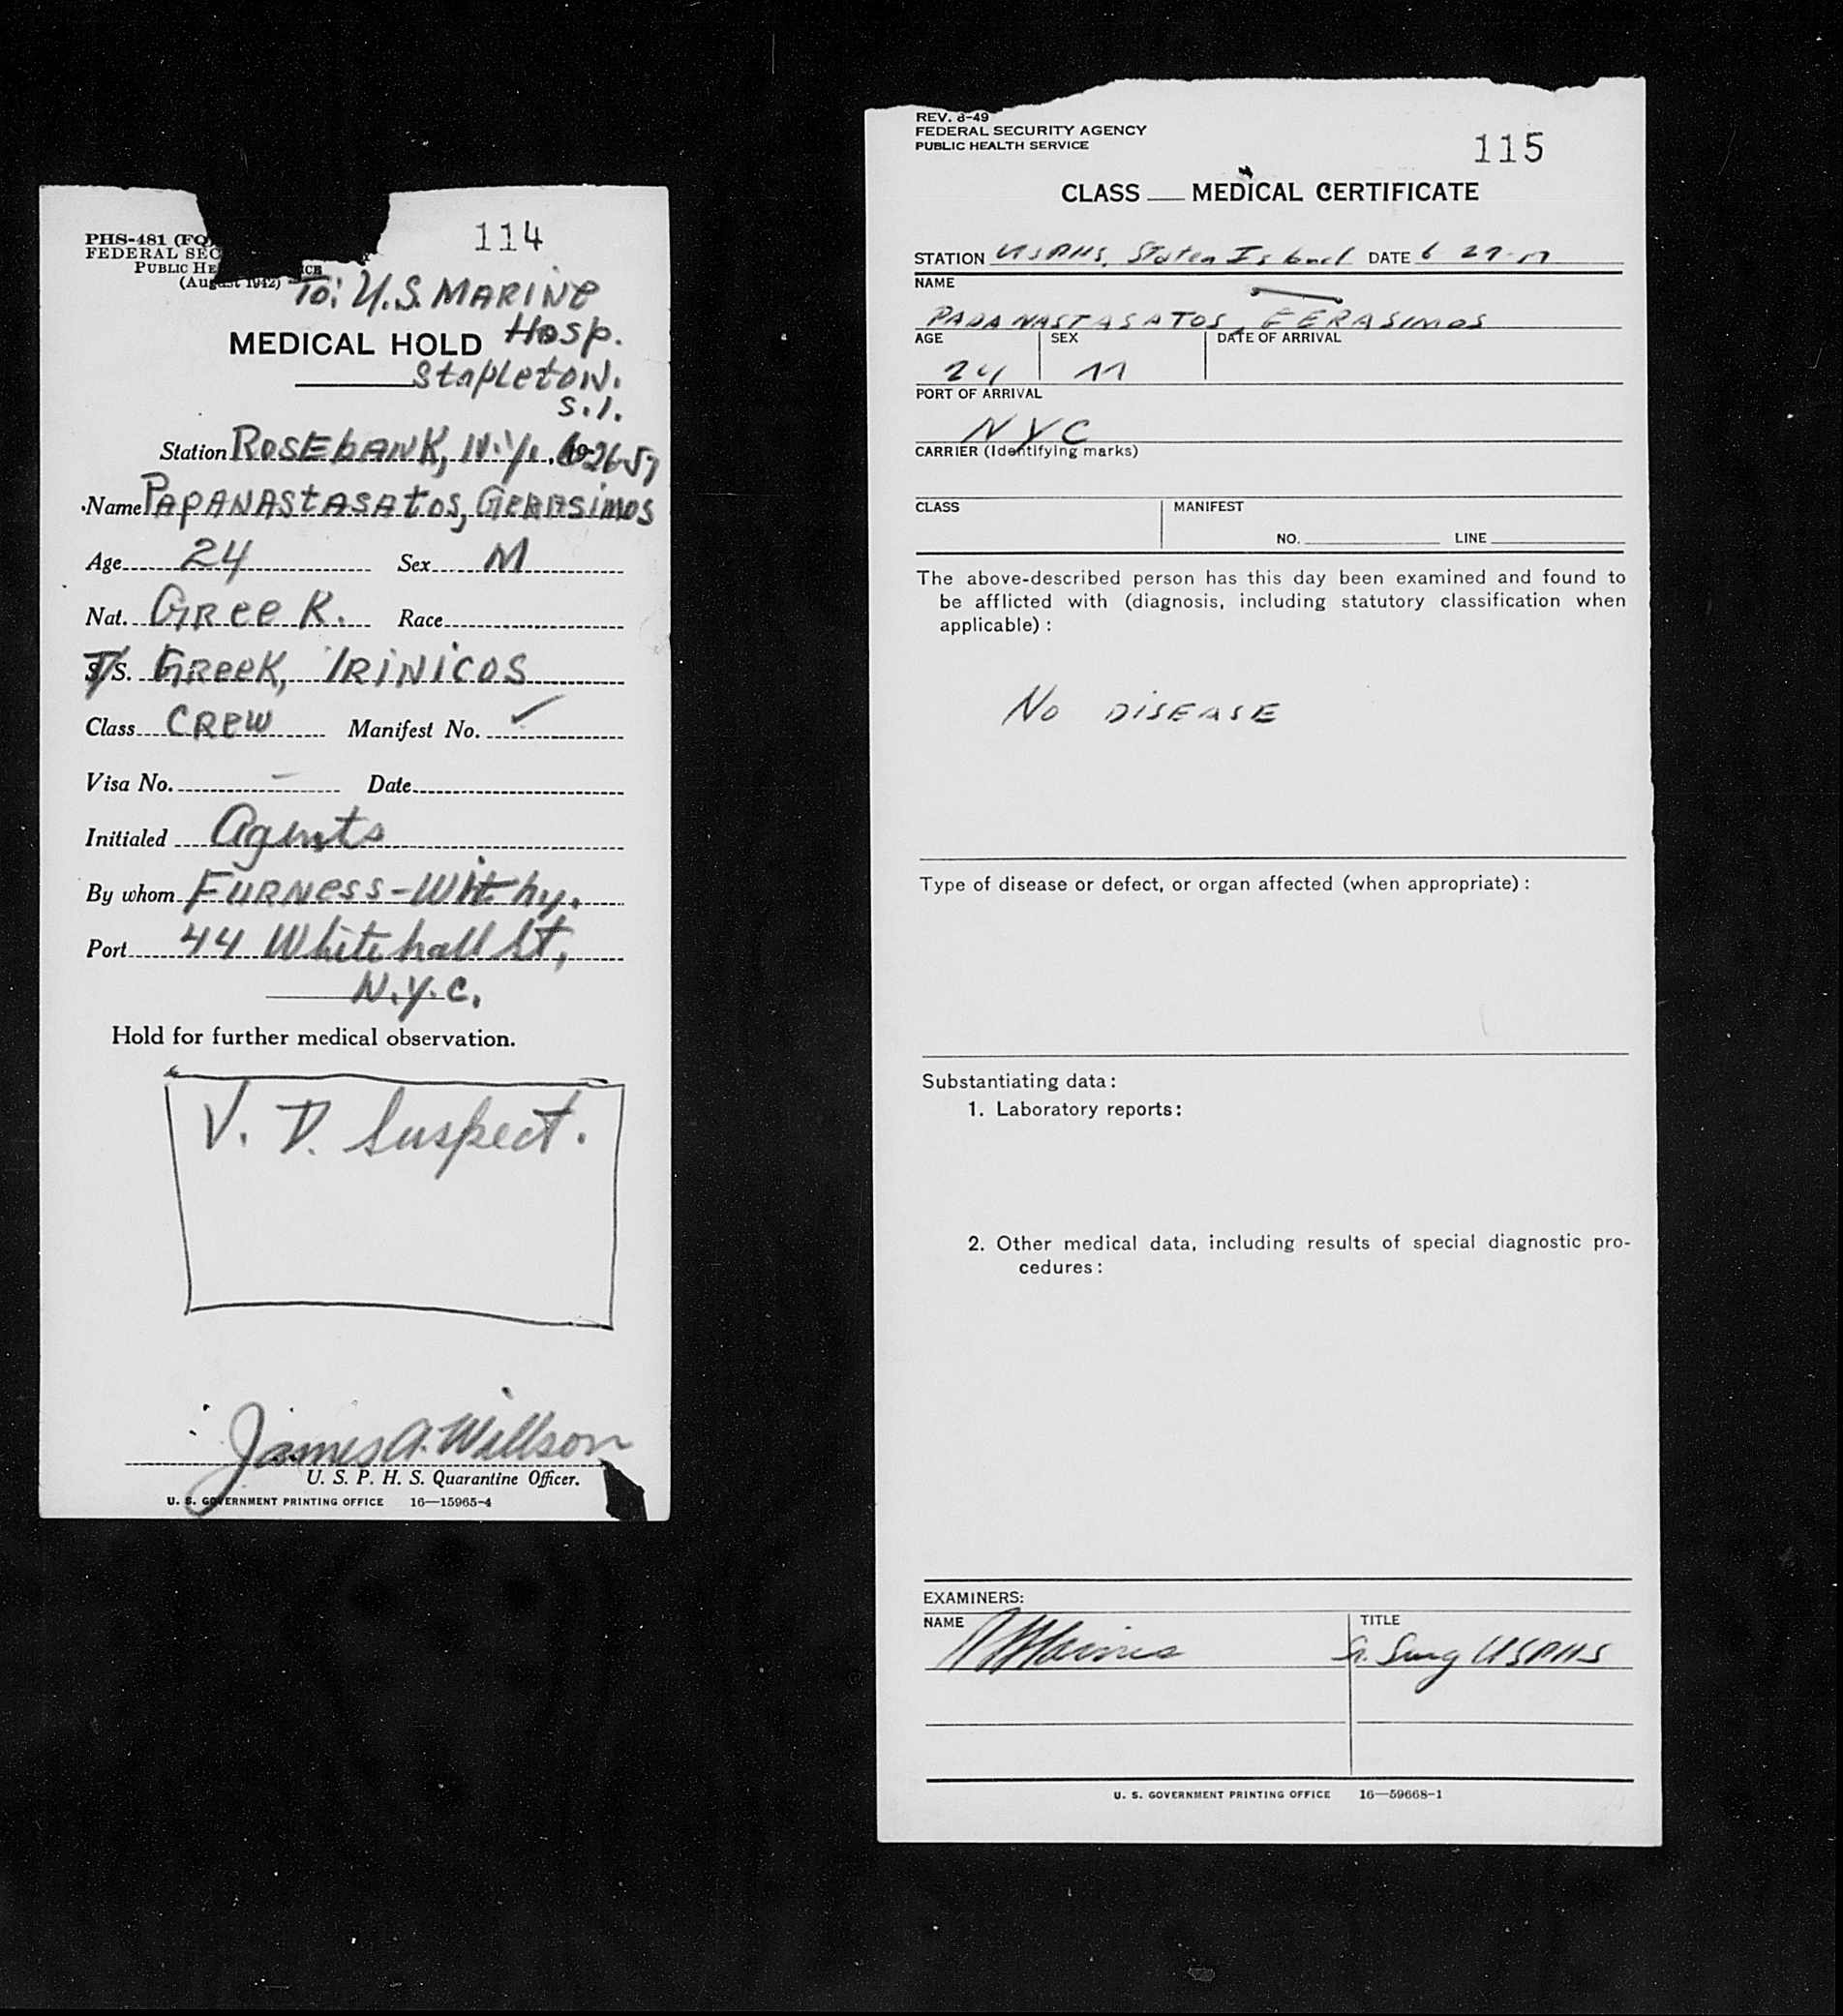 114
PHS-481 (FQ)
FEDERAL SEC
PUBLIC HE
(August 1942)
To: U.S. MARINE
MEDICAL HOLD Hosp.
Stapleton.
S.I.
Station ROSEbANK, N.Y., 6-26-57
Name PAPANASTASATOS, GERASIMOS
Age 24 Sex M
Nat. GREEK. Race
S. GREEK, IRINICOS
Class CREW Manifest No. ✓
Visa No. – Date
Initialed Agents
By whom FURNESS-Withy.
Port 44 Whitehall St,
N.Y.C.
Hold for further medical observation.
V. D. Suspect.
James A. Willson
U. S. P. H. S. Quarantine Officer.
U. S. GOVERNMENT PRINTING OFFICE 16—15965-4
REV. 8-49
FEDERAL SECURITY AGENCY
PUBLIC HEALTH SERVICE
115
CLASS MEDICAL CERTIFICATE
STATION USPHS, Staten Island DATE 6 27
NAME
PAPANASTASATOS, GERASIMOS
AGE SEX DATE OF ARRIVAL
24 M
PORT OF ARRIVAL
NYC
CARRIER (Identifying marks)
CLASS MANIFEST
NO. LINE
The above-described person has this day been examined and found to
be afflicted with (diagnosis, including statutory classification when
applicable):
No DISEASE
Type of disease or defect, or organ affected (when appropriate):
Substantiating data:
1. Laboratory reports:
2. Other medical data, including results of special diagnostic pro-
cedures:
EXAMINERS:
NAME TITLE
Sr. Surg USPHS
U. S. GOVERNMENT PRINTING OFFICE 16—59668-1